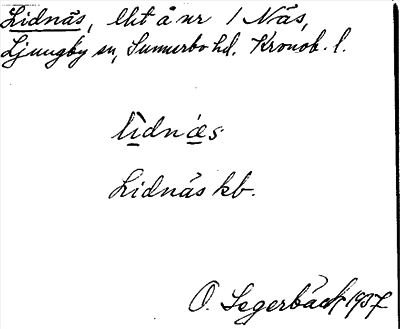 Lidnäs, lht å nr 1 Näs,
Ljungby sn, Sunnerbo hd. Kronob. l.
lìdnæs
Lidnäs kb.
O. Segerbäck 1937